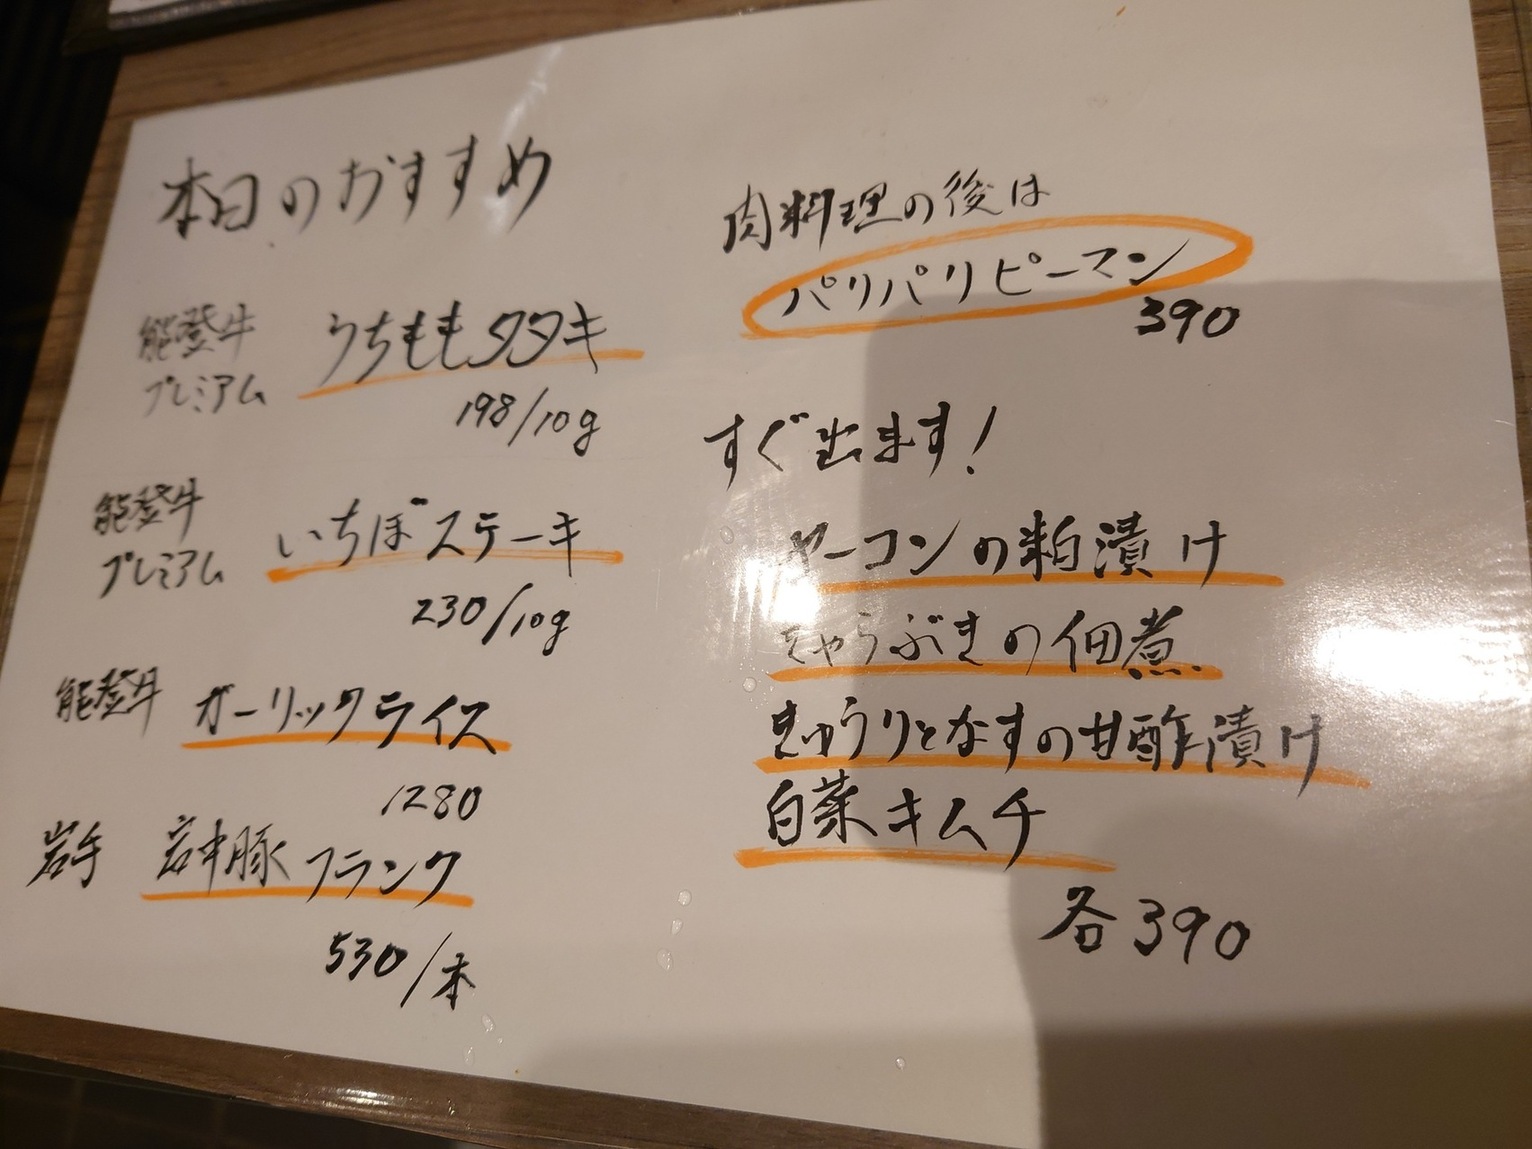 本日のおすすめ
能登牛
プレミアム
うちももタタキ
198/10g
能登牛
プレミアム
いちぼステーキ
230/10g
能登牛 ガーリックライス
1280
岩手 岩中豚フランク
530/本
肉料理の後は
パリパリピーマン
390
すぐ出ます!
ヤーコンの粕漬け
きゃらぶきの佃煮
きゅうりとなすの甘酢漬け
白菜キムチ
各390